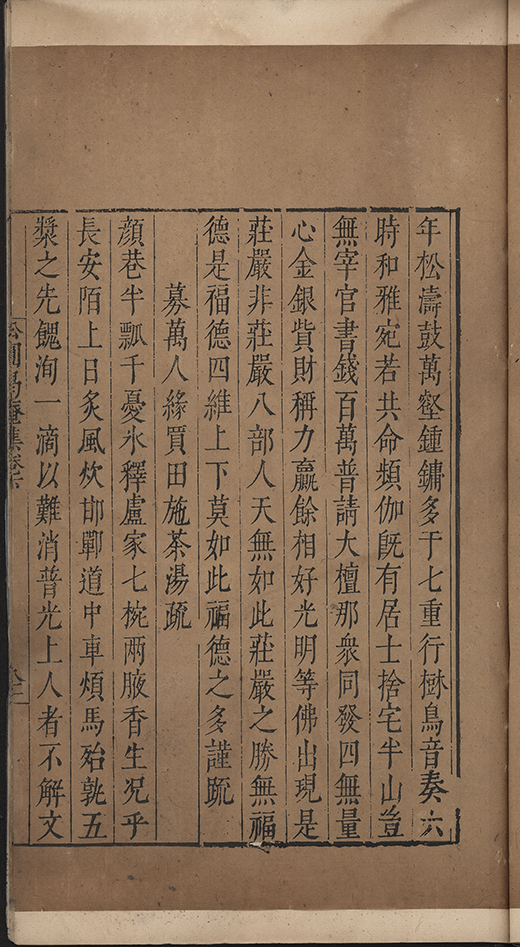 年松濤鼓萬壑鍾鏞多于七重行樹鳥音奏六
時和雅宛若共命頻伽旣有居士捨宅半山豈
無宰官書錢百萬普請大檀那衆同發四無量
心金銀貲財稱力贏餘相好光明等佛出現是
莊嚴非莊嚴八部人天無如此莊嚴之勝無福
德是福德四維上下莫如此福德之多謹疏
募萬人緣買田施茶湯疏
顏巷半瓢千憂氷釋盧家七椀兩腋香生况乎
長安陌上日炙風炊邯鄲道中車煩馬殆孰五
漿之先餽洵一滴以難消普光上人者不解文
集卷六